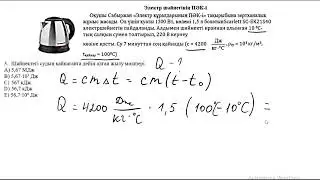 Электр шәйнегінің ПӘК-і
Оқушы Сабыржан «Электр құралдарының ПӘК-і» тақырыбына зертханалық
жұмыс жасады. Ол үшін қуаты 1300 Вт, көлемі 1,5 л болатын Scarlett SC-EK21S60
электршәйнегін пайдаланды. Алдымен шәйнекті краннан алынған 10 °C-
тық сумен толтырып, 220 В кернеу
көзіне қосты. Су 7 минуттан соң қайнады (c = 4200 Дж/кг·°C, ρсу = 10³ кг/м³,
tқайнау = 100°C)
3. Шәйнектегі судың қайнағанға дейін алған жылу мөлшері:
A) 5,67 МДж
B) 5,67·10⁵ Дж
C) 567 кДж
D) 56,7 кДж
E) 56,7·10⁶ Дж
Q - ?
Q = cmΔt = cm(t - t₀)
Q = 4200 Дж/кг·°C · 1,5 (100°C - 10°C) =
=